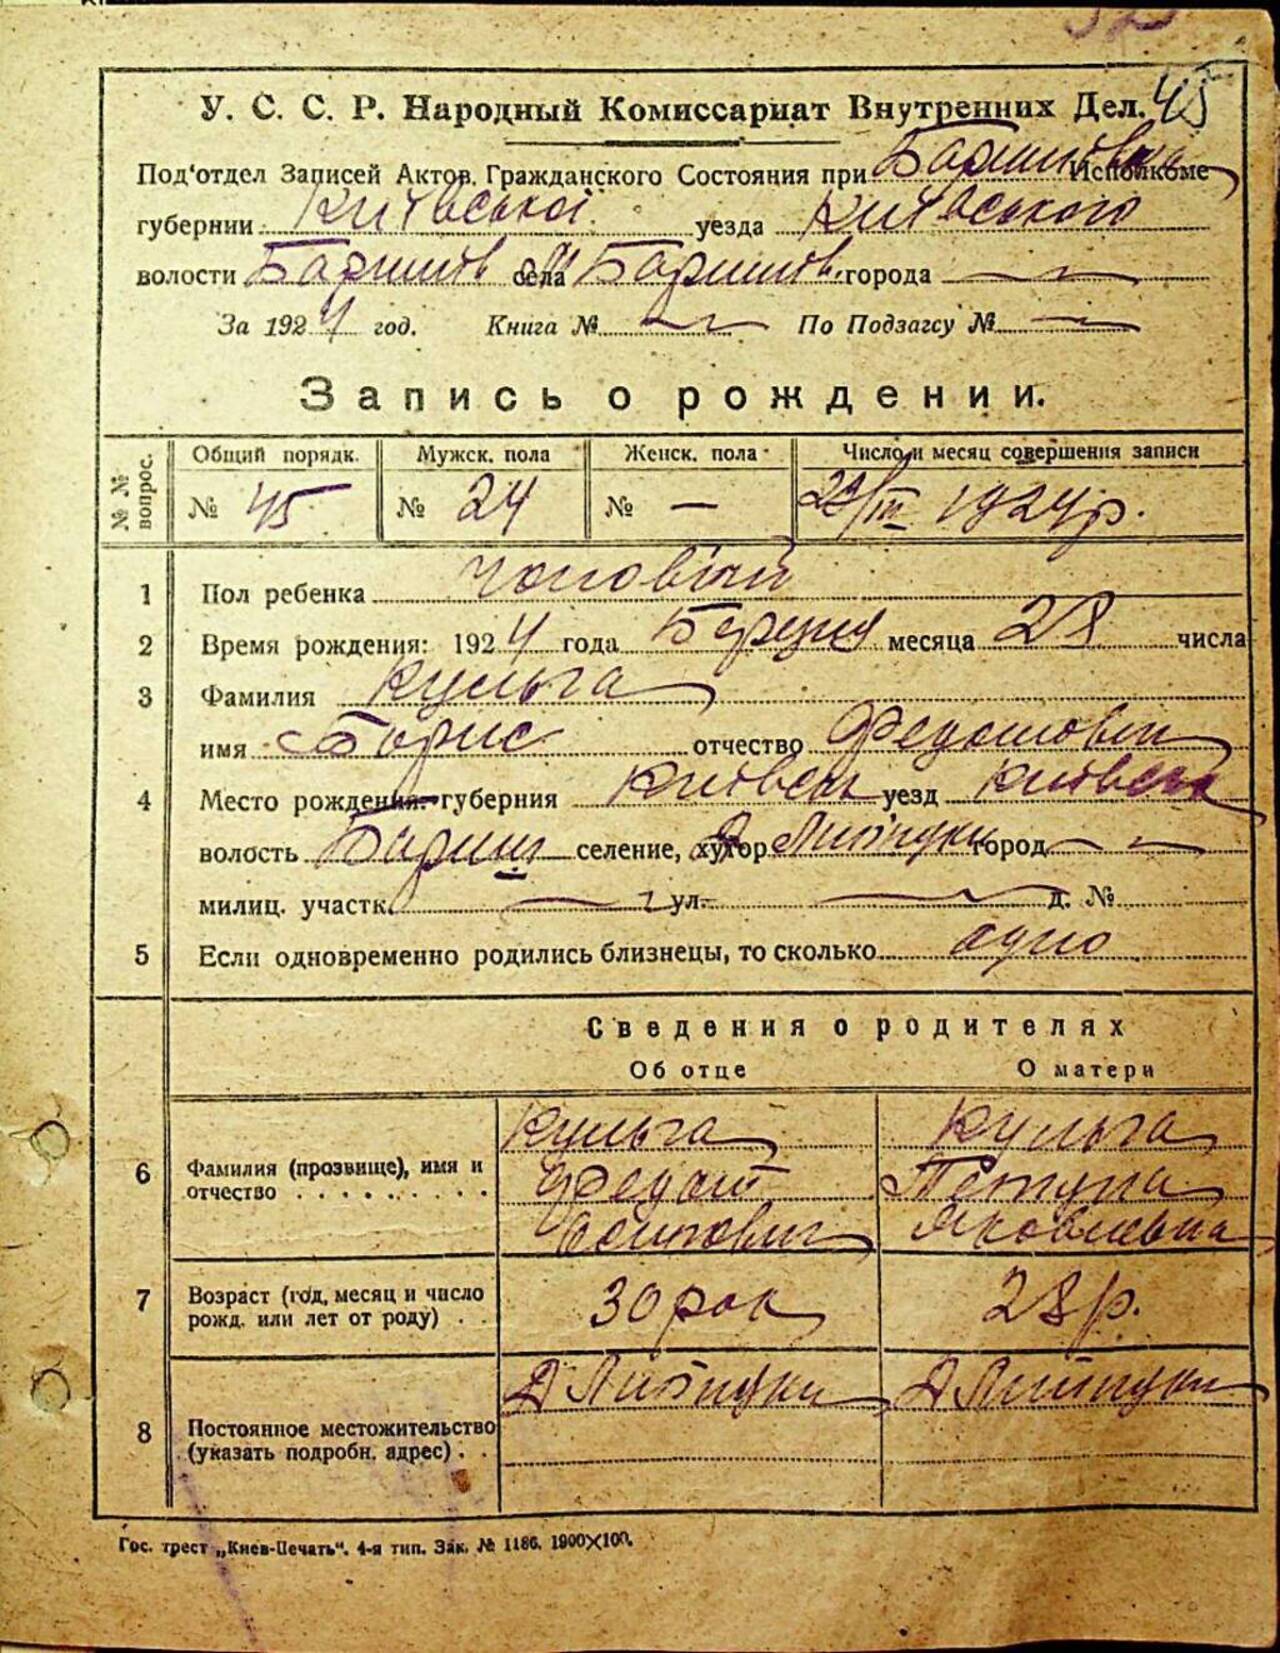 45
У. С. С. Р. Народный Комиссариат Внутренних Дел.
Под'отдел Записей Актов. Гражданского Состояния при Исполкоме
губернии Київської уезда Київського
волости Баришів села Баришів. города —
За 1924 год. Книга № — По Подзагсу № —
Запись о рождении.
№№ вопрос. Общий порядк. Мужск. пола Женск. пола Число и месяц совершения записи
№ 45 № 24 № — /III 1924 р.
1 Пол ребенка чоловічий
2 Время рождения: 1924 года Березня месяца 28 числа
3 Фамилия Кульга
имя Борис отчество Федотович
4 Место рождения: губерния Київськ уезд Київськ
волость Бариш селение, хутор город —
милиц. участк. — ул. — д. №
5 Если одновременно родились близнецы, то сколько одно
Сведения о родителях
Об отце О матери
6 Фамилия (прозвище), имя и отчество . . . . . . . . . Кульга Кульга
Федот
Яковлевна
7 Возраст (год, месяц и число рожд. или лет от роду) . . 30 рок 28 р.
8 Постоянное местожительство (указать подробн. адрес) . .
Гос. трест „Киев-Печать“. 4-я тип. Зак. № 1186. 1900×100.